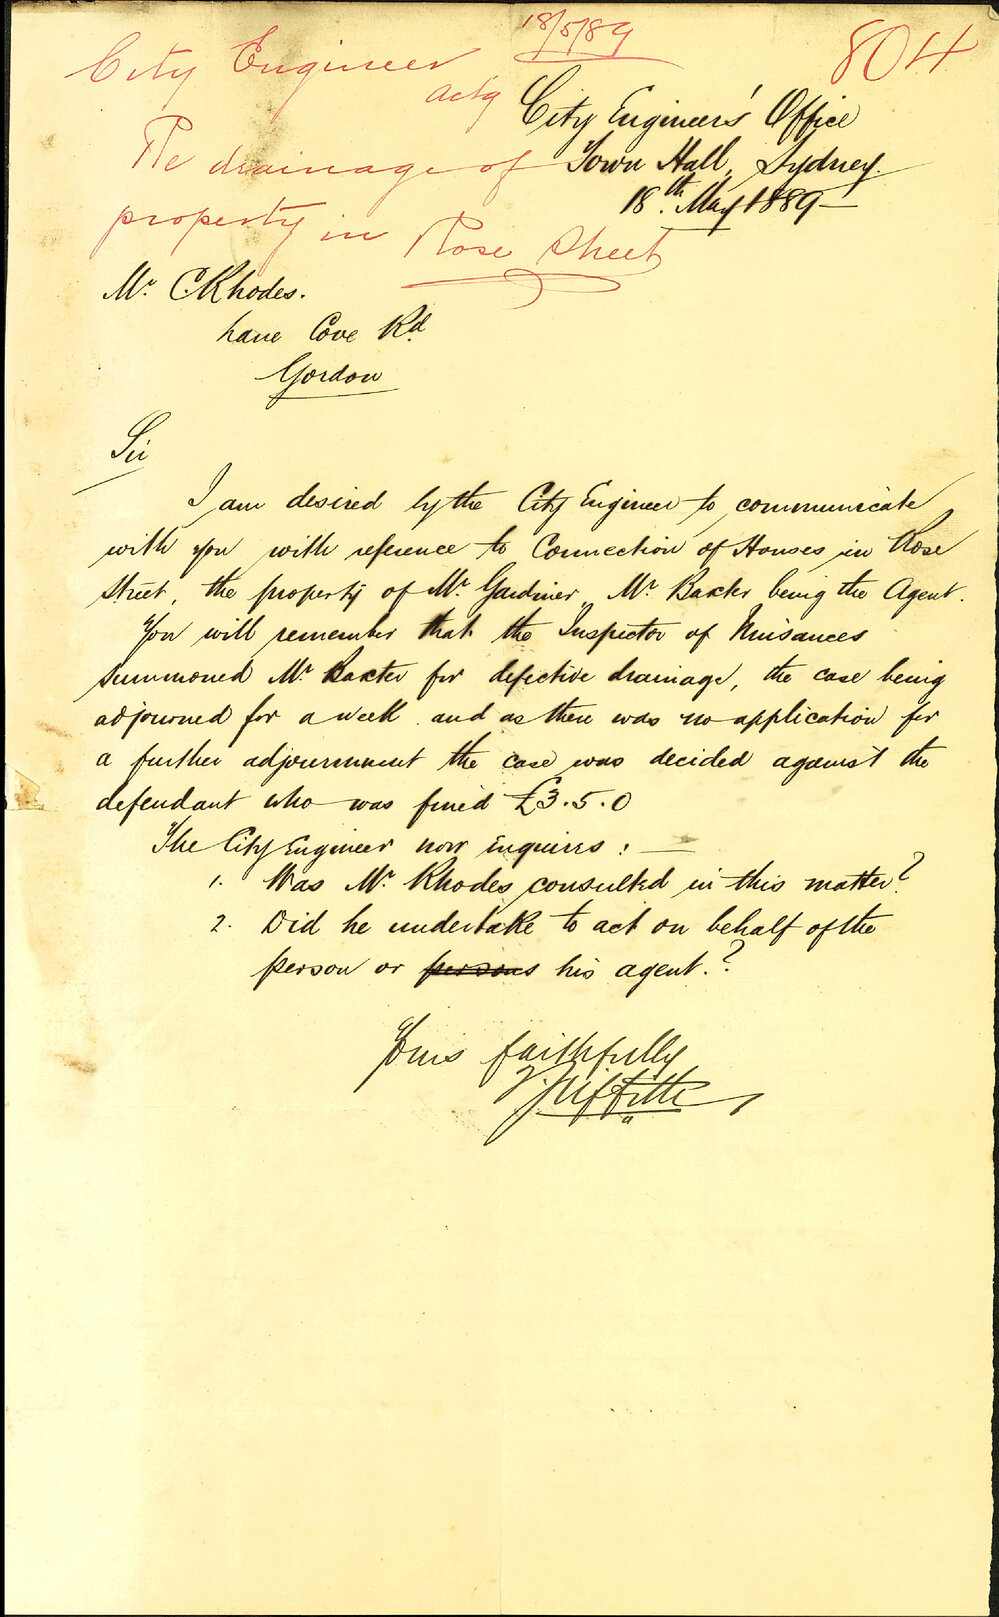 18/5/89
804
City Engineer
actg
Re drainage of
property in Rose Street
City Engineers' Office
Town Hall, Sydney.
18th May 1889
Mr. C Rhodes.
Lane Cove Rd
Gordon
Sir
I am desired by the City Engineer to communicate
with you with reference to Connection of Houses in Rose
Street, the property of Mr. Gardiner, Mr. Baxter being the Agent.
You will remember that the Inspector of Nuisances
summoned Mr Baxter for defective drainage, the case being
adjourned for a week and as there was no application for
a further adjournment the case was decided against the
defendant who was fined £3.5.0
The City Engineer now enquires : —
1. Was Mr. Rhodes consulted in this matter?
2. Did he undertake to act on behalf of the
person or persons his agent.?
Yours faithfully